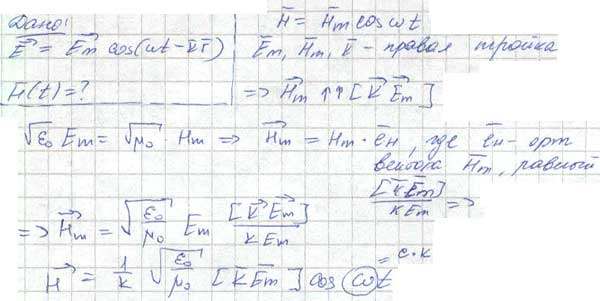 Дано:
E⃗ = E⃗m cos(ωt – k̄r̄)
H̄(t) = ?
H̄ = H̄m cos ωt
Ēm, H̄m, k̄ – правая тройка
=> H̄m ↑↑ [k⃗ E⃗m]
√ε₀ Em = √μ₀ · Hm => H̄m = Hm · ēн, где ēн – орт
вектора H̄m, равный
[k̄Ēm]/kEm =>
=> H⃗m = √(ε₀/μ₀) Em [k⃗ E⃗m]/kEm
H⃗ = 1/k √(ε₀/μ₀) [k̄Ēm] cos ωt
= c·k